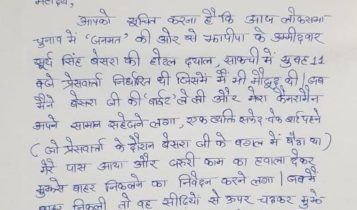 महोदय,
आपको सूचित करना है कि आज लोकसभा
चुनाव में 'जनमत' की ओर से झापीपा के उम्मीदवार
सूर्य सिंह बेसरा की होटल दयाल, साकची में सुबह 11
बजे प्रेसवार्ता निर्धारित थी जिसमें मैं भी मौजूद थी। जब
मैंने बेसरा जी की 'बाईट' ले ली और मेरा कैमरामैन
अपने सामान सहेजने लगा, एक व्यक्ति सफेद चेक शर्ट पहने
(जो प्रेसवार्ता के दौरान बेसरा जी के बगल में बैठा था)
मेरे पास आया और जरुरी काम का हवाला देकर
मुझसे बाहर निकलने का निवेदन करने लगा। जब मैं
बाहर निकली तो वह सीढ़ियों से ऊपर चढ़कर मुझे